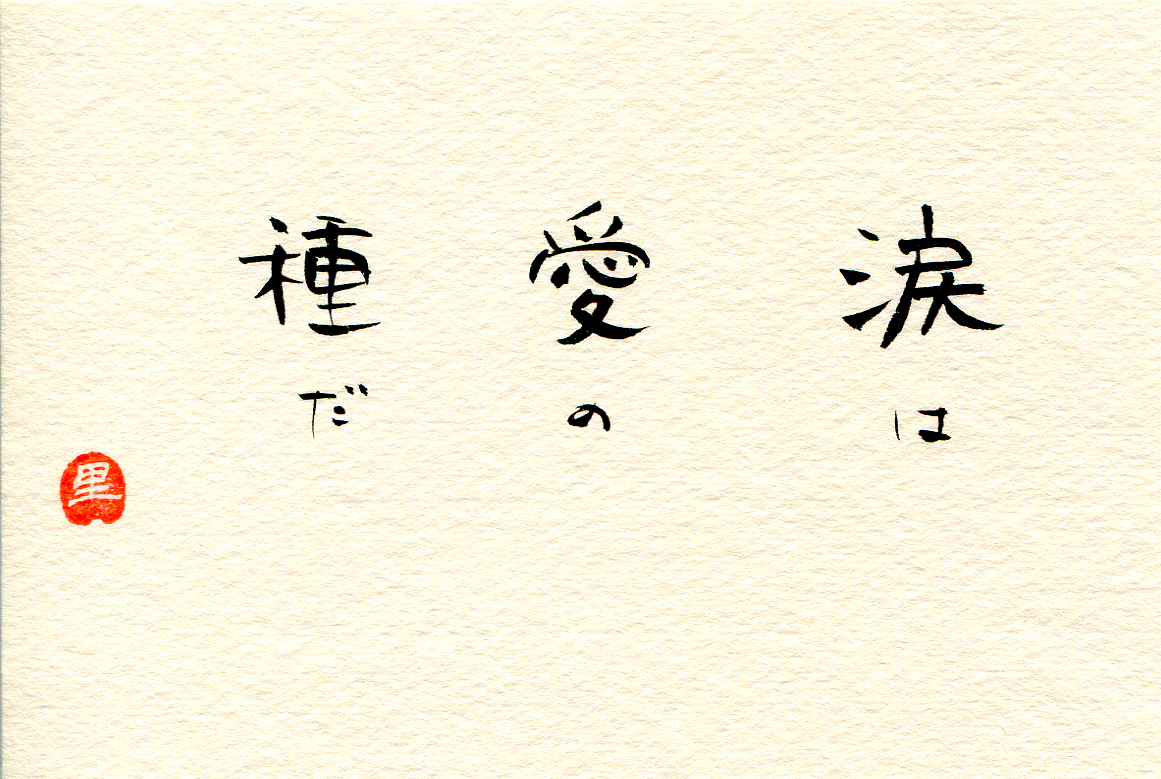 涙は
愛の
種だ
里